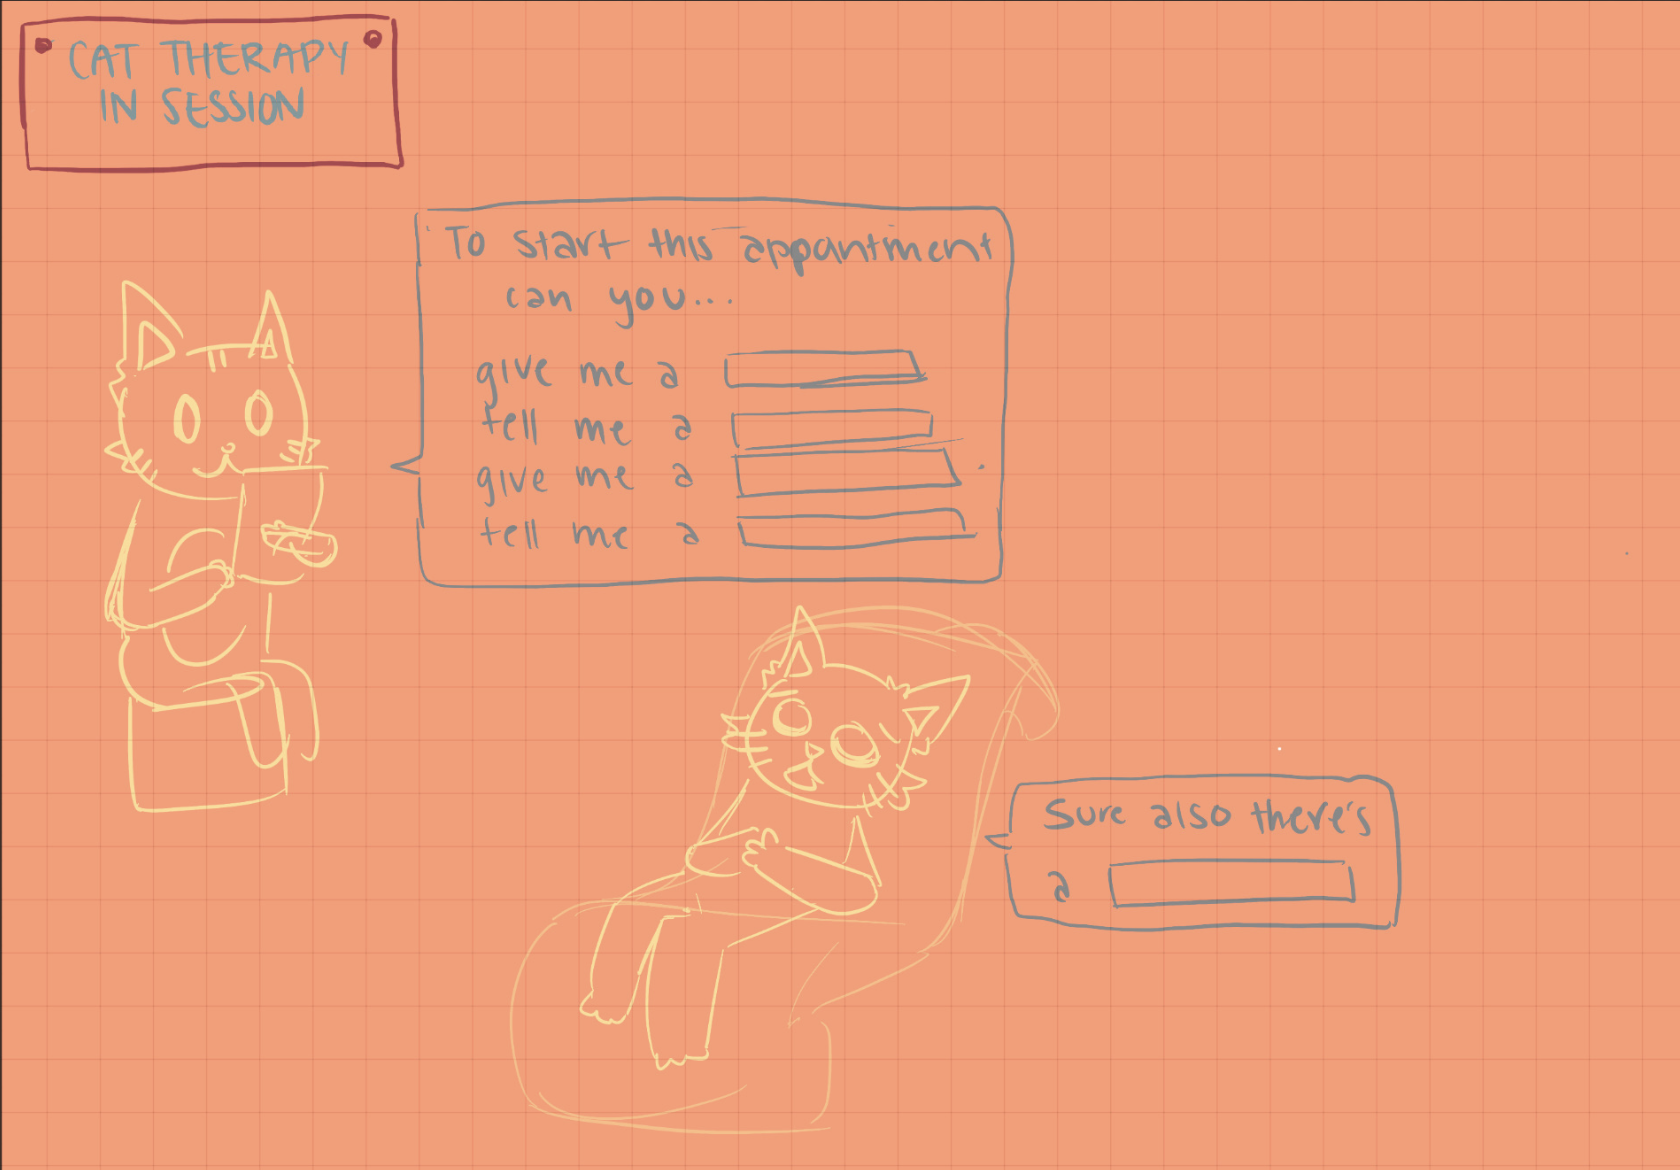 CAT THERAPY
IN SESSION
To start this appantment
can you...
give me a
tell me a
give me a
tell me a
Sure also there's
a